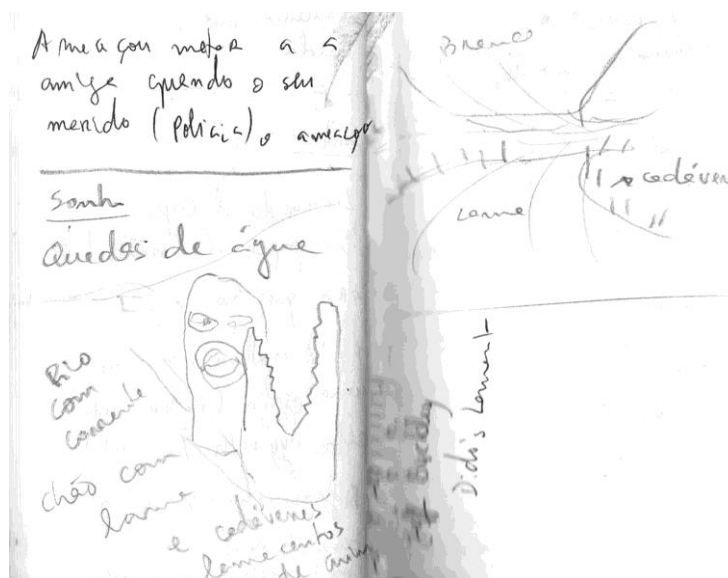 Ameaçou matar a a
amiga quando o seu
marido (polícia) o ameaçou
Sonho
Quedas de água
Rio
com
corrente
chão com
lama
e cadávenes
lamacentos
de
Branco
cadáven
Lama
Dido's Lament